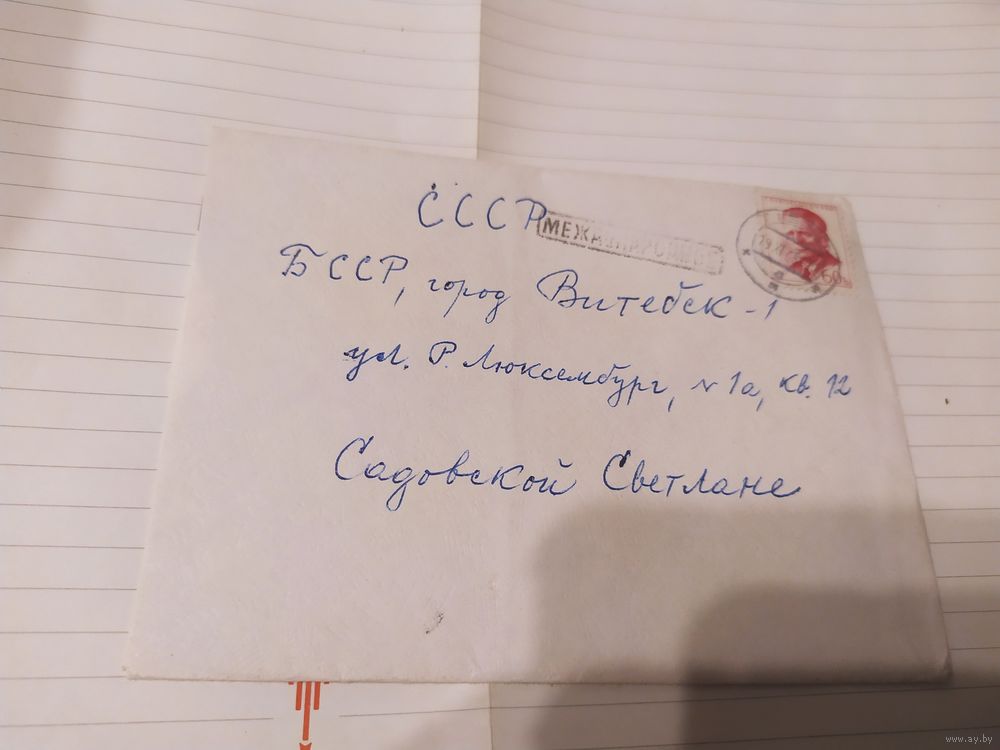 СССР
МЕЖДУНАРОДНОЕ
БССР, город Витебск-1
ул. Р. Люксембург, № 1а, кв. 12
Садовской Светлане
60
www.ay.by